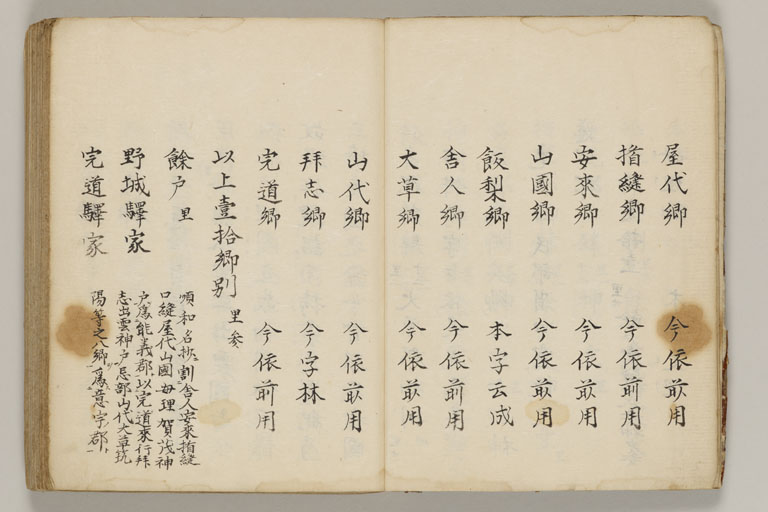 屋代郷 今依前用
楯縫郷 今依前用
安來郷 今依前用
山國郷 今依前用
飯梨郷 本字云成
舎人郷 今依前用
大草郷 今依前用
山代郷 今依前用
拜志郷 今字林
完道郷 今依前用
以上壹拾郷別 里参
餘戸 里
野城驛家
完道驛家
順和名抄割舎人安來楯縫
口縫屋代山國母理賀茂神
戸為能義郡以完道來行拜
志出雲神戸忌部山代大草筑
陽等之八郷為意宇郡